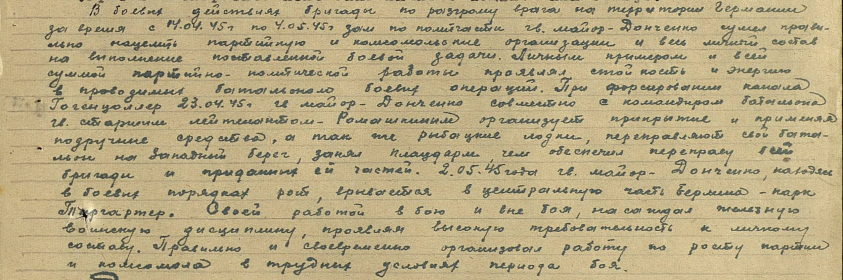 В боевых действиях бригады по разгрому врага на территории Германии
за время с 14.04.45г по 4.05.45г зам по политчасти гв. майор- Донченко сумел правиль-
льно нацелить партийную и комсомольские организации и весь личный состав
на выполнение поставленной боевой задачи. Личным примером и всей
суммой партийно-политической работы проявлял стойкость и энергию
в проводимых батальоном боевых операций. При форсировании канала
Гогенцоллер 23.04.45г гв майор- Донченко совместно с командиром батальона
гв. старшим лейтенантом- Ромашкиным организует прикрытие и применяя
подручные средства, а так же рыбацкие лодки, переправляют свой бата-
льон на Западный берег, занял плацдарм, чем обеспечил переправу всей
бригады и приданных ей частей. 2.05.45 года гв. майор- Донченко, находясь
в боевых порядках рот, врывается в центральную часть Берлина - парк
Тиргартер. Своей работой в бою и вне боя, насаждал железную
воинскую дисциплину, проявляя высокую требовательность к личному
составу. Правильно и своевременно организовал работу по росту партии
и комсомола в трудных условиях периода боя.